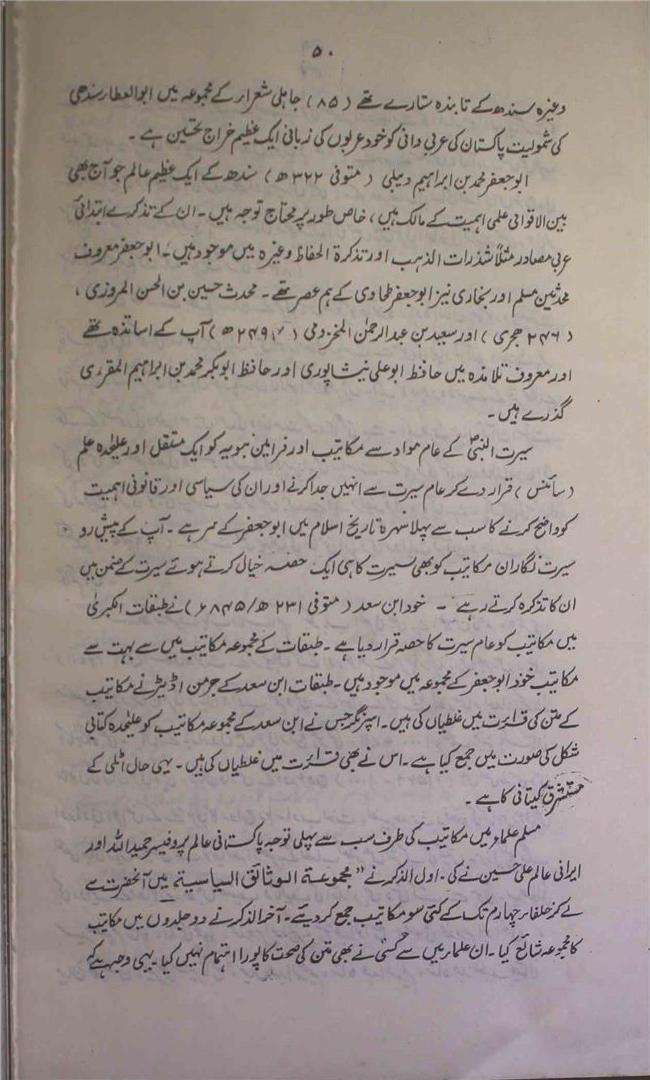 ۵۰
وغیرہ سندھ کے تابندہ ستارے تھے (۸۵) جاہلی شعرار کے مجموعہ میں ابوالعطار سندھی
کی شمولیت پاکستان کی عربی دانی کو خود عربوں کی زبانی ایک عظیم خراج تحسین ہے ۔
ابو جعفر محمد بن ابراہیم دیبلی ( متوفی ۳۲۲ ھ ) سندھ کے ایک عظیم عالم جو آج بھی
بین الاقوامی علمی اہمیت کے مالک ہیں ، خاص طور پر محتاج توجہ ہیں ۔ ان کے تذکرے ابتدائی
عربی مصادر مثلاً شذرات الذہب اور تذکرۃ الحفاظ وغیرہ میں موجود ہیں ۔ ابو جعفر معروف
محدثین مسلم اور بخاری نیز ابو جعفر طحاوی کے ہم عصر تھے ۔ محدث حسین بن الحسن المروزی ،
( ۲۴۶ ہجری ) اور سعید بن عبدالرحمٰن المخزومی ( ۲۴۹ ھ ) آپ کے اساتذہ تھے
اور معروف تلامذہ میں حافظ ابو علی نیشاپوری اور حافظ ابوبکر محمد بن ابراہیم المقرری
گذرے ہیں ۔
سیرت النبیؐ کے عام مواد سے مکاتیب اور فرامین نبویہ کو ایک مستقل اور علیٰحدہ علم
( سائنس ) قرار دے کر عام سیرت سے انہیں جدا کرنے اور ان کی سیاسی اور قانونی اہمیت
کو واضح کرنے کا سب سے پہلا سہرہ تاریخ اسلام میں ابو جعفر کے سر ہے ۔ آپ کے پیش رو
سیرت نگاران مکاتیب کو بھی سیرت کا ہی ایک حصہ خیال کرتے ہوئے سیرت کے ضمن میں
ان کا تذکرہ کرتے رہے ۔ خود ابن سعد ( متوفی ۲۳۱ ھ/۸۴۵ء ) نے طبقات الکبریٰ
میں مکاتیب کو عام سیرت کا حصہ قرار دیا ہے ۔ طبقات کے مجموعہ مکاتیب میں سے بہت سے
مکاتیب خود ابو جعفر کے مجموعہ میں موجود ہیں ۔ طبقات ابن سعد کے جرمن اڈیٹر نے مکاتیب
کے متن کی قرارت میں غلطیاں کی ہیں ۔ اسپرنگر جس نے ابن سعد کے مجموعہ مکاتیب کو علیٰحدہ کتابی
شکل کی صورت میں جمع کیا ہے ۔ اس نے بھی قرارت میں غلطیاں کی ہیں ۔ یہی حال اٹلی کے
مستشرق کیتانی کا ہے ۔
مسلم علماء میں مکاتیب کی طرف سب سے پہلی توجہ پاکستانی عالم پروفیسر حمید اللہ اور
ایرانی عالم علی حسین نے کی ۔ اول الذکر نے " مجموعة الوثائق السياسية میں آنحضرت سے
لے کر خلفار چہارم تک کے کئی سو مکاتیب جمع کر دیئے ۔ آخر الذکر نے دو جلدوں میں مکاتیب
کا مجموعہ شائع کیا ۔ ان علمار میں سے کسی نے بھی متن کی صحت کا پورا اہتمام نہیں کیا ۔ یہی وجہ ہے کہ